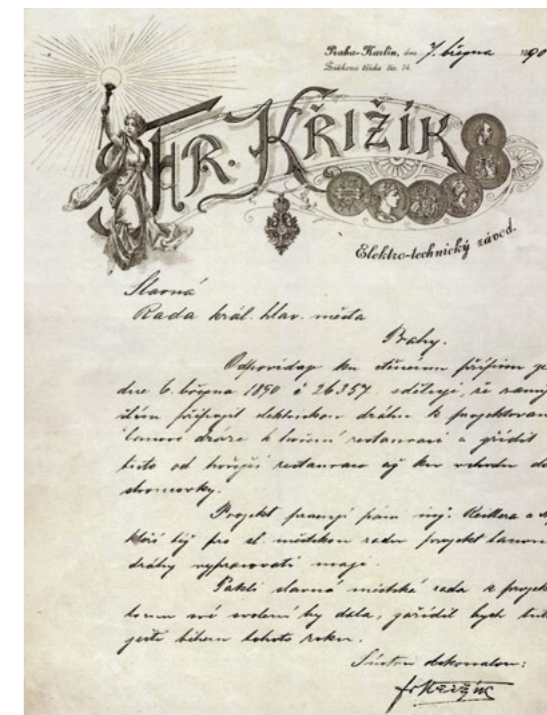 Praha-Karlín, dne 7. března 1890
Fr. Křižík
Elektro-technický závod.
Slavná
Rada král. hlav. města
Prahy.
Odpovídaje ku ctěnému přípisu ze
dne 6. března 1890 č 26357 sděluji, že
připojit elektrickou dráhu k projektovan
lanové dráze k horní restauraci a zřídit
tuto od hořejší restaurace až ku vchodu do
stromovky.
Projekt pracují páni inž. Reiter a
též pro sl. městskou radu projekt lanov
dráhy vypracovati mají.
Pakli slavná městská rada k projekt
tomu své svolení by dala, zařídil bych
ještě během tohoto roku.
V úctě dokonalou:
Fr Křižík